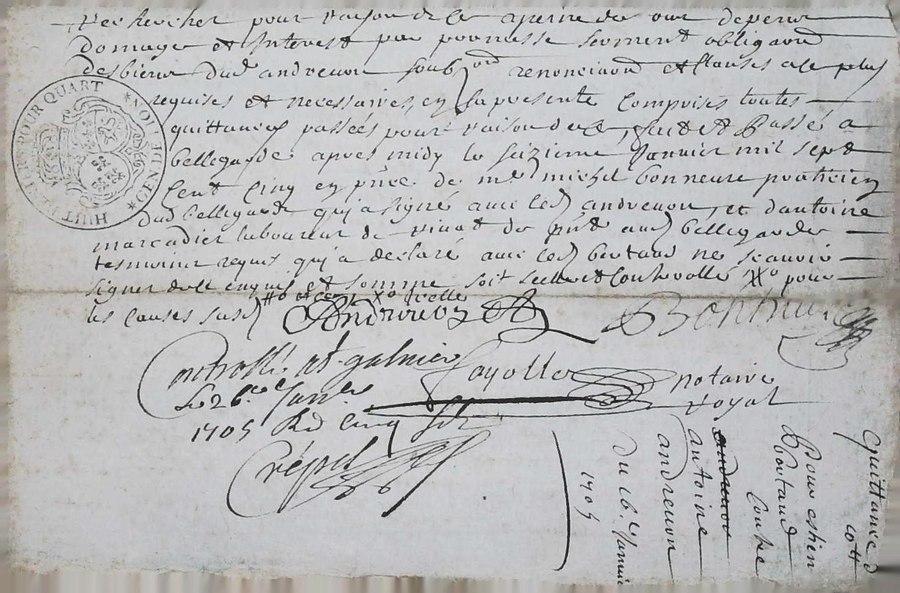 rechercher pour raison de ce a peine de tous depens
domage et Interest par promesse serment obliga͠on
des biens dud andrevon soub͠z renoncia͠on et clauses a ce plus
requises et necessaires, en la presente comprises toutes
quittances passées pour raison de ce, fait et Passé a
bellegarde apres midy le seizieme Janvier mil sept
Cent Cinq en p͠nce de me michel bonneure praticien
dud bellegarde qui a signé avec led andrevon, et d'antoine
marcadier laboureur de p͠nt aud bellegarde
tesmoins requis qui a declaré avec led bertaud ne scavoir
signer de ce enquis et sommé soit scellé et Controllé pour
les causes susd
Andrevon
Bonneure
Controllé at galmier
Fayolle
notaire
royal
Le 26me Janvier
1705 Rd Cinq sols
Crépet
HUIT DEN POUR QUART
MOY DEN
Quittance
Pour estien
bertaud
Contre
andrevon
antoine
andrevon
du 16e Janvier
1705